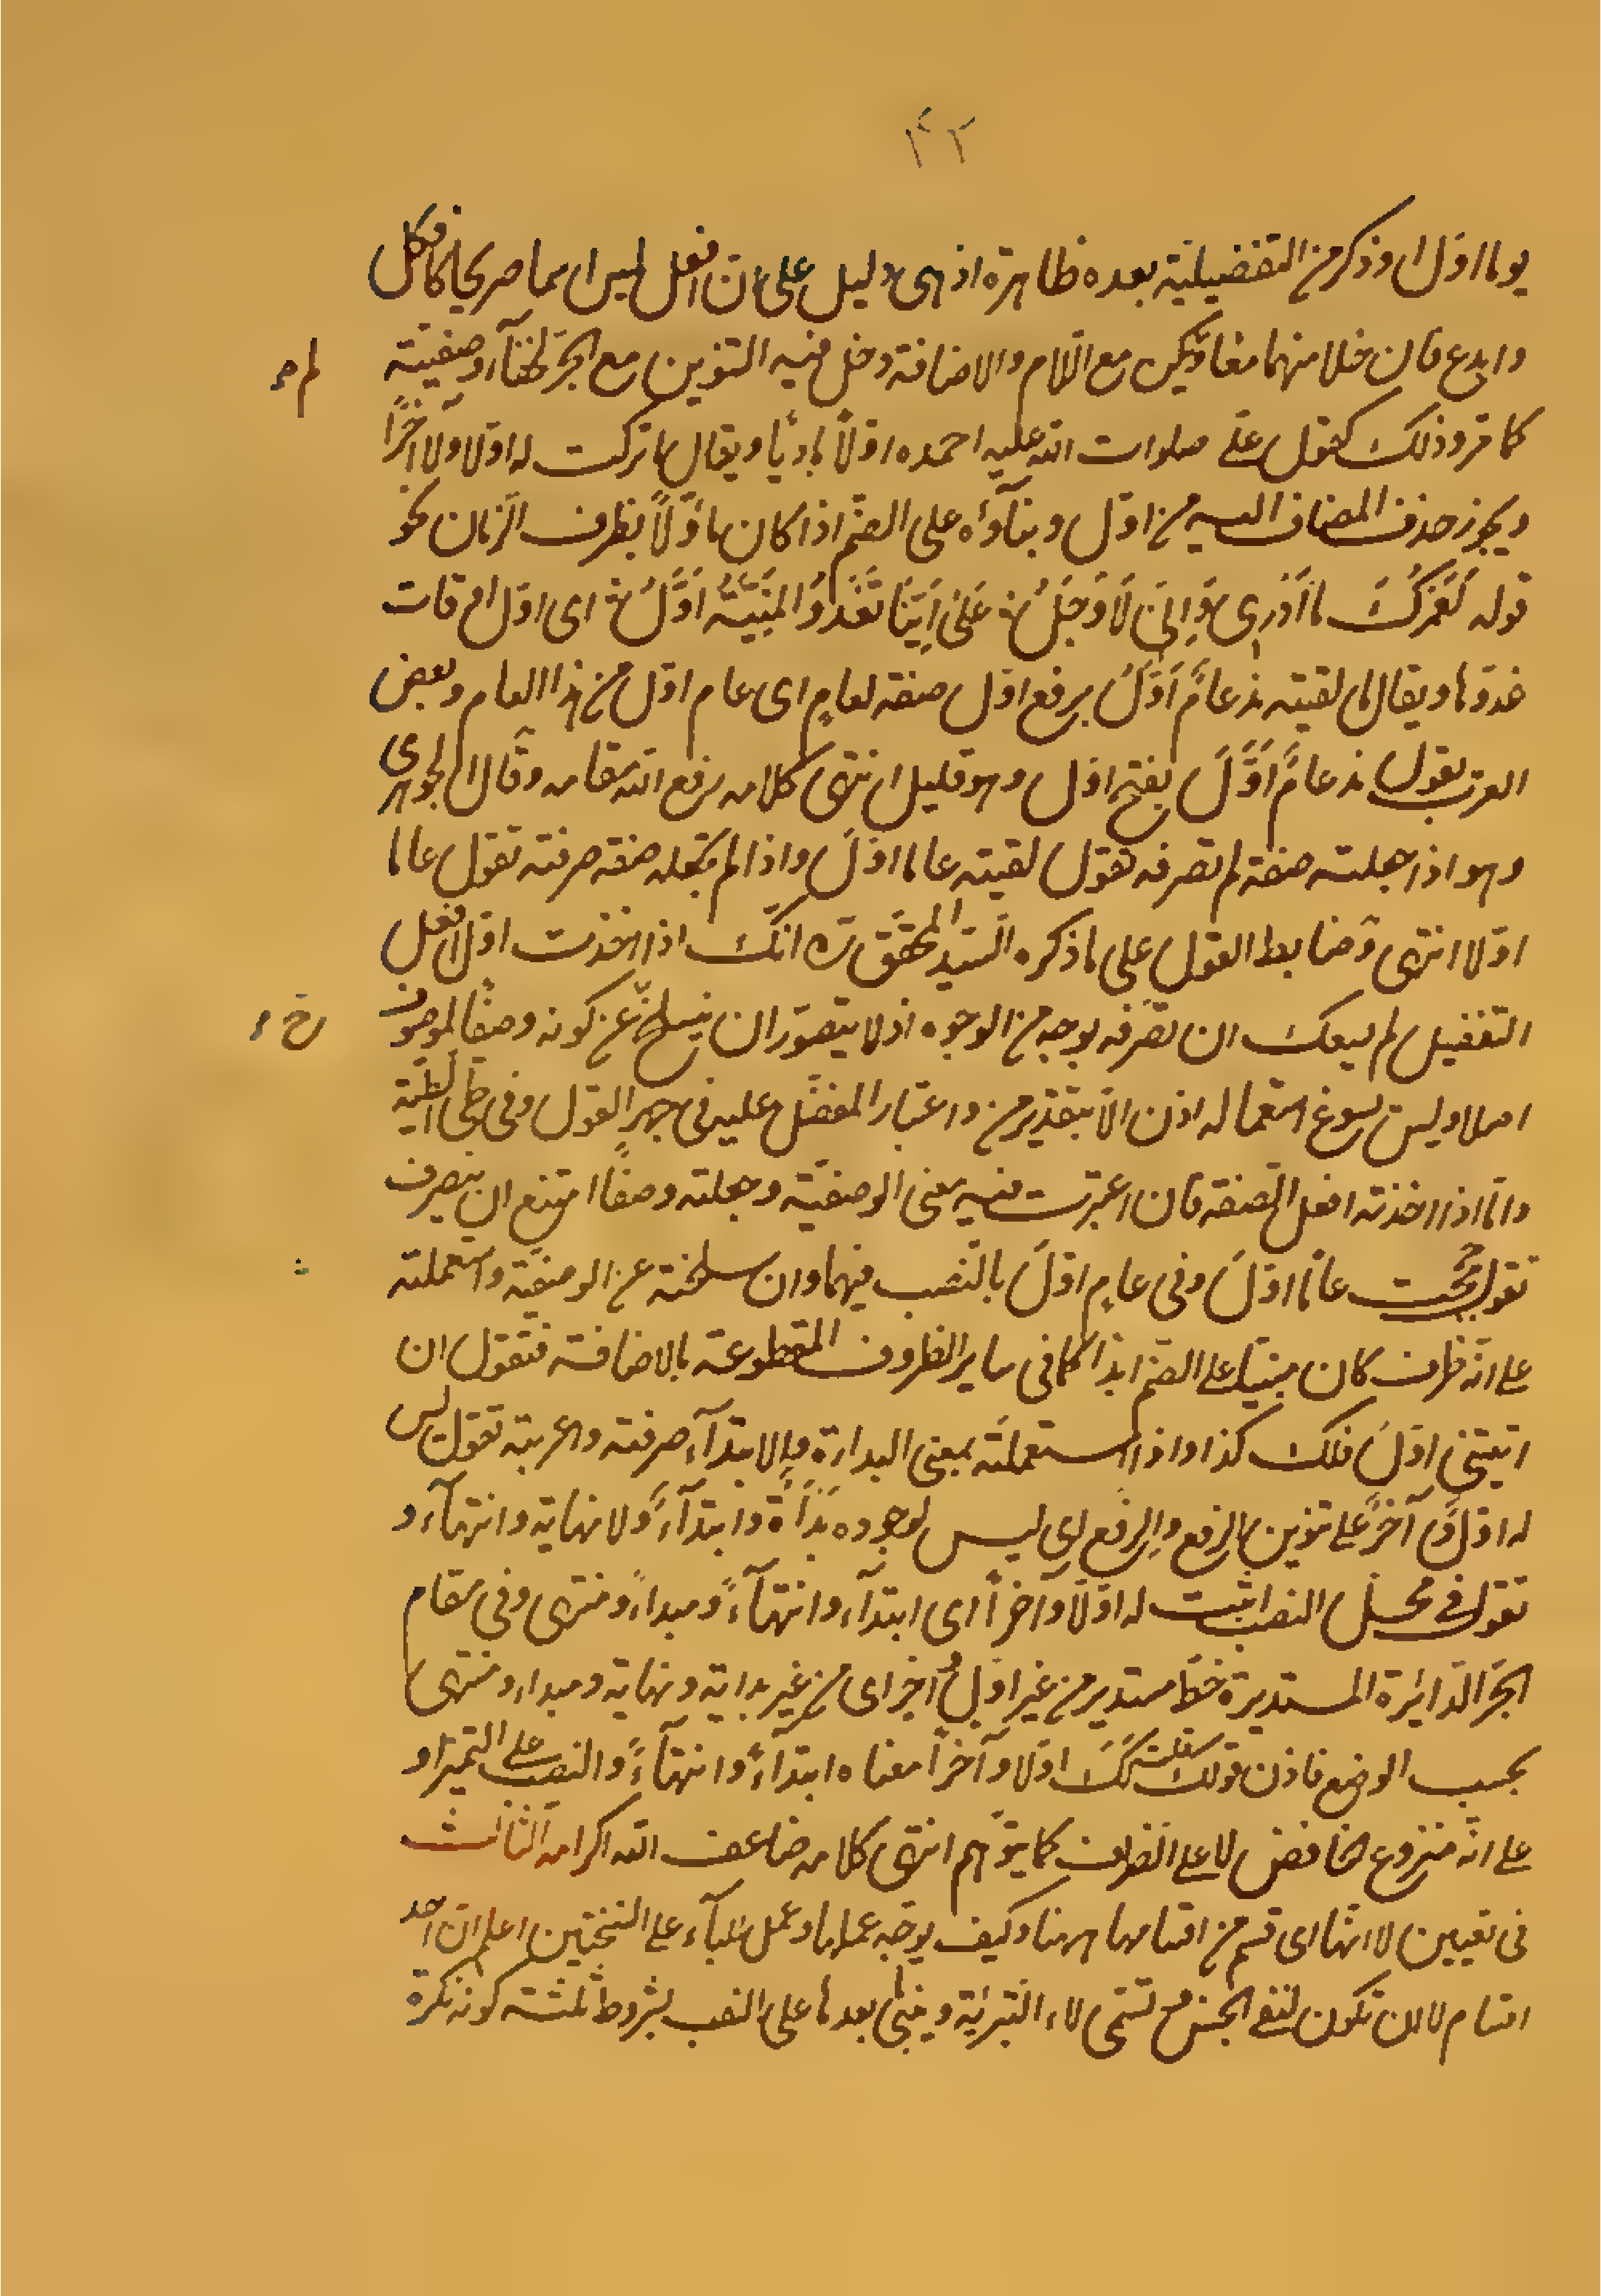 ٤٢
يوما اول او ذكر من التفضيلية بعده ظاهرة اذ هى دليل على ان افعل ليس اسما صريحا كافكل
وايدع فان خلا منهما معا ولم يكن مع اللام والاضافة دخل فيه التنوين مع الجر لخفآء وصفيته
لم
كما مر وذلك كقول على صلوات الله عليه احمده اولاً بادئا ويقال ما تركت له اولا ولا آخرًا
ويجوز حذف المضاف اليه من اول وبنآؤه على الضم اذا كان مأولًا بظرف الزمان نحو
قوله لَعَمْرُكَ ما اَدْرِى وَاِنّى لَاَوْجَلُ عَلىٰ اَيِّنَا تَغْدُو الْمَنِيَّةُ اَوَّلُ اى اول اوقات
غدوها ويقال ما لقيته مذ عامٌ اَوَّلُ برفع اول صفة لعام اى عام اول من هذا العام وبعض
العرب يقول مذ عامٌ اَوَّلَ بفتح اول وهو قليل انتهى كلامه رفع الله مقامه وقال الجوهرى
وهو اذا جعلته صفة لم تصرفه تقول لقيته عاما اولَ واذا لم تجعله صفة صرفته تقول عاما
اولا انتهى وضابط القول على ما ذكره السّيد المحقّق ره انك اذا اخذت اول افعل
التفضيل لم يسعك ان تصرفه بوجه من الوجوه اذ لا يتصوّر ان ينسلخ عن كونه وصفًا لموصوف
خ
اصلا وليس يسوغ استعماله اذن الّا بتقدير من واعتبار المفضّل عليه فى جهر القول وفى طى النيّة
وامّا اذا اخذته افعل الصّفة فان اعتبرت فيه معنى الوصفيّة وجعلته وصفًا امتنع ان ينصرف
تقول حججت عامًا اولَ وفى عامٍ اولَ بالنّصب فيهما وان سلخته عن الوصفيّة واستعملته
على انّه ظرف كان مبنيًا على الضم ابدًا كما فى ساير الظروف المقطوعة بالاضافة فتقول ان
اتيتنى اولُ فلك كذا واذا استعملته بمعنى البدارة والابتدآء صرفته واعربته تقول ليس
له اولٌ وآخرٌ على تنوين الرفع والرفع اى ليس لوجوده بَدْأَةٌ وابتدآءٌ ولا نهاية وانتهآء و
تقول فى محل النصب اثبت له اولًا وآخرًا اى ابتدآء وانتهآءً ومبداءً ومنتهى وفى مقام
الجرّ الدّايرة المستديرة خطّ مستدير من غير اولٍ وآخر اى من غير بداية ونهاية ومبداء ومنتهى
بحسب الوضع فاذن قولك اولًا وآخرًا معناه ابتدآءً وانتهآءً والنصب على التميز او
على انّه منزوع الخافض لا على الظرف كما يتوّهم انتهى كلامه ضاعف الله اكرامه الثّالث
فى تعيين لا انّها اى قسم من اقسامها ههنا وكيف يوجّه عملها وعمل البآء على النسختين اعلم ان احد
اقسام لا ان تكون لنفى الجنس وتسمّى لاء التبريّة ويبنى بعدها على النصب بشروط ثلثة كونه نكرة